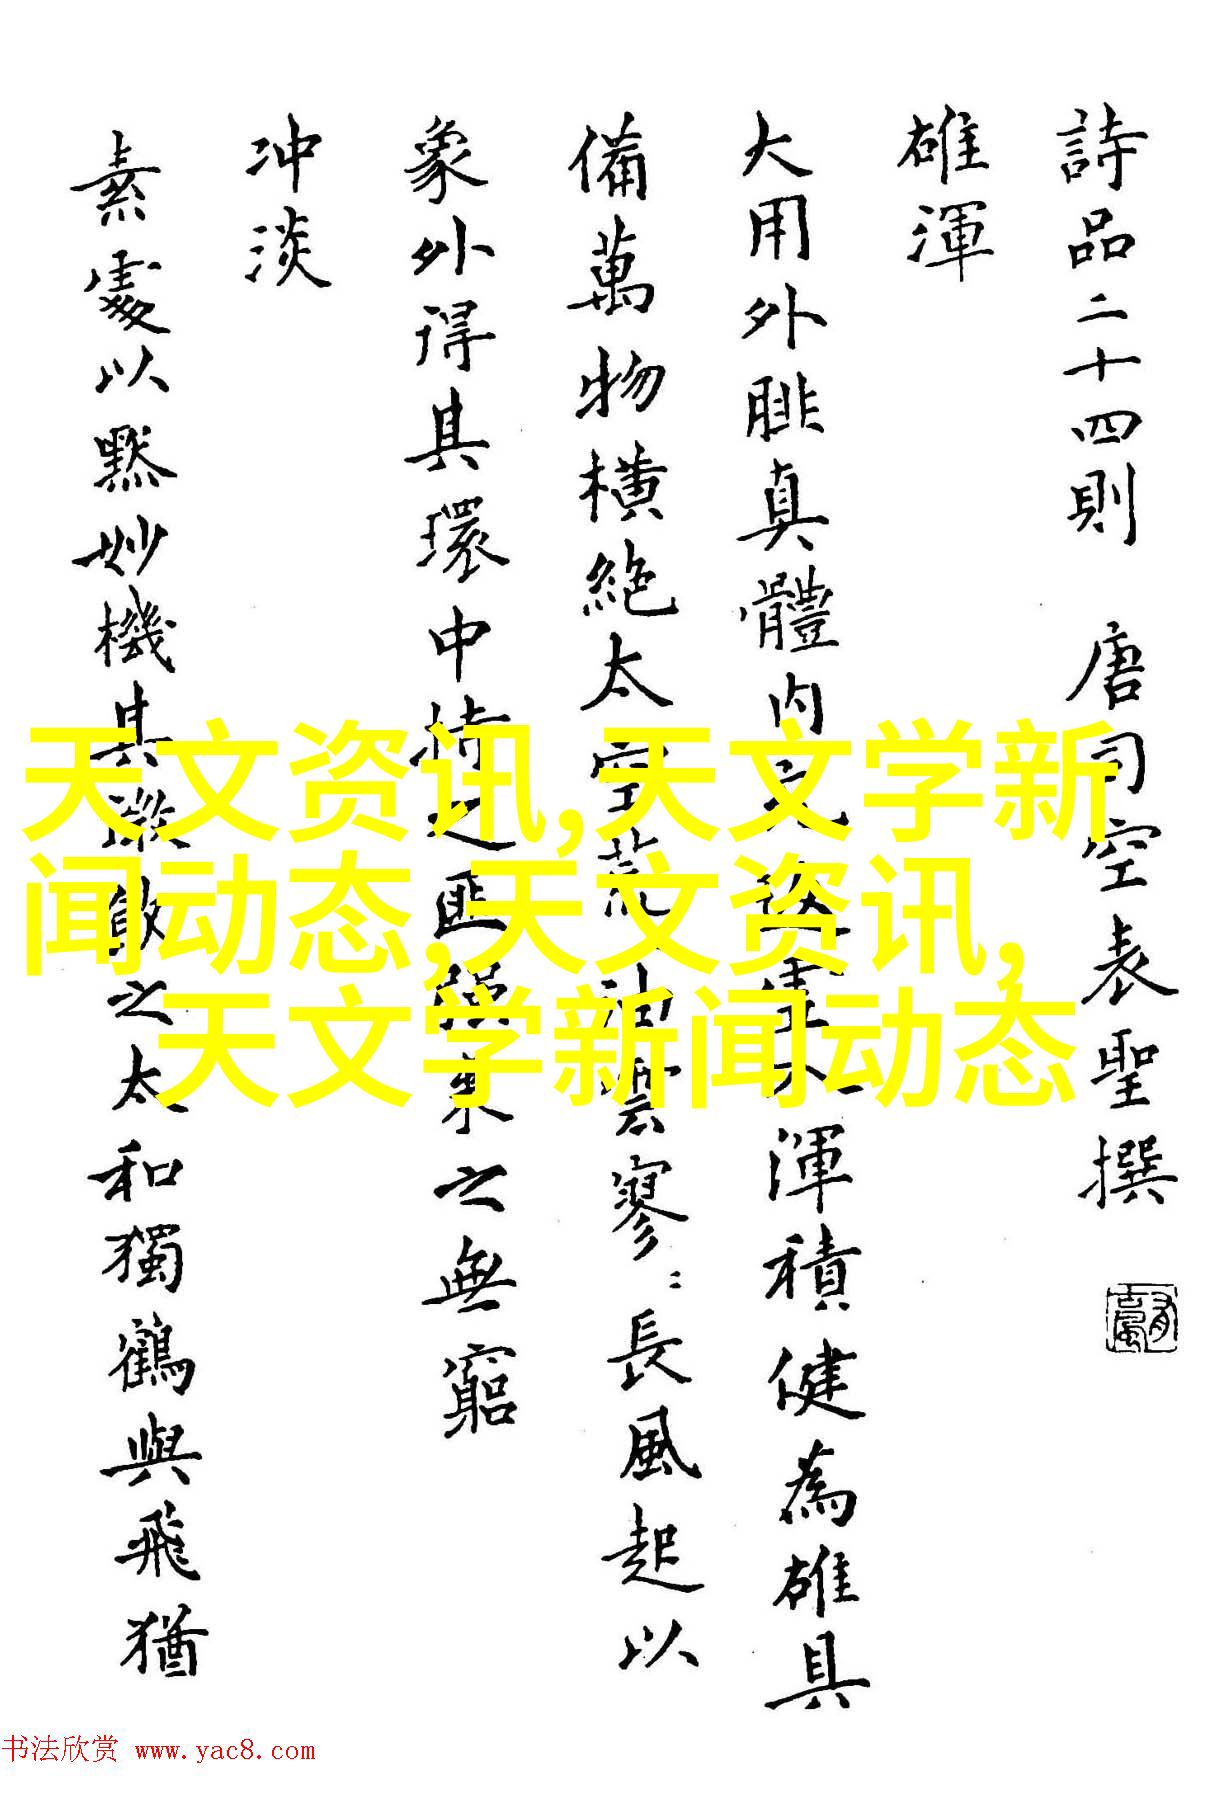 詩品二十四則 唐司空表聖撰
雄渾
大用外腓真體内充 渾積健為雄具
備萬物横絶太空荒 雲寥〻長風起以
象外得其環中持之匪强来之無窮
冲淡
素處以黙妙機其微飲之太和獨鶴與飛猶
天文资讯,天文学新
闻动态,天文资讯,
天文学新闻动态
书法欣赏 www.yac8.com